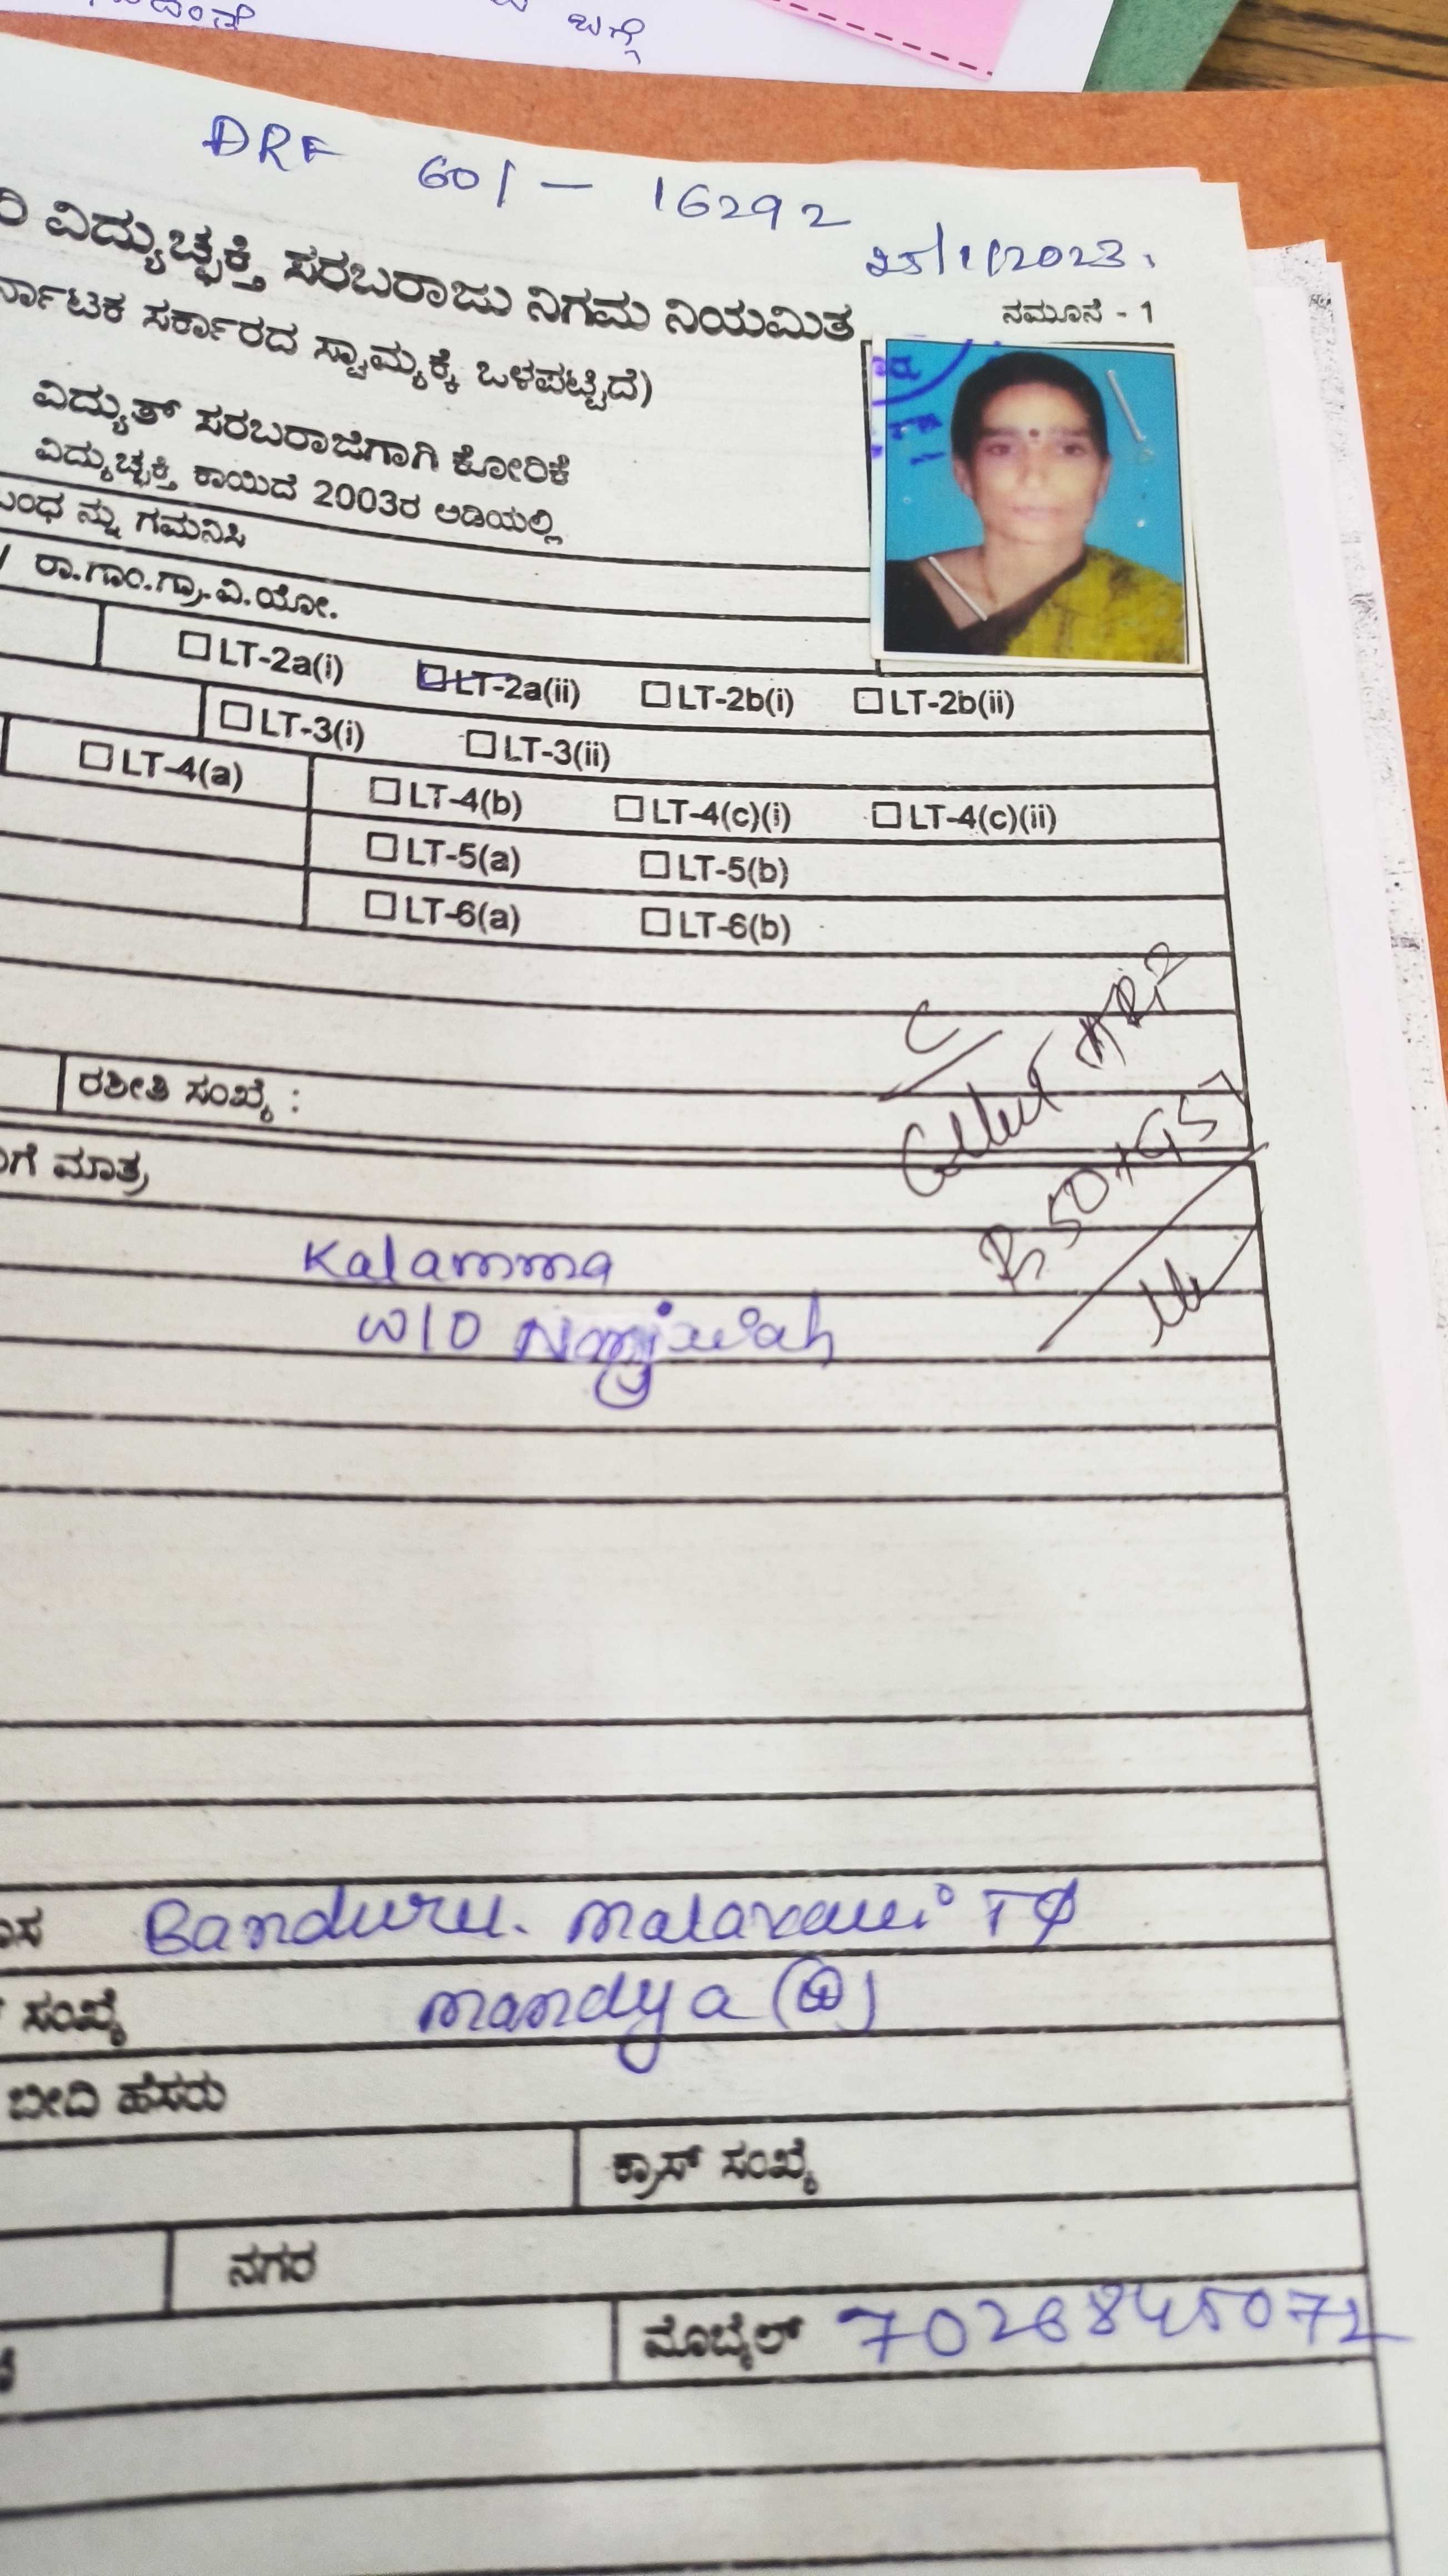 ಬಗ್ಗೆ
DRF 60/- 16292
25/1/2023.
ರಿ ವಿದ್ಯುಚ್ಛಕ್ತಿ ಸರಬರಾಜು ನಿಗಮ ನಿಯಮಿತ
ನಮೂನೆ - 1
ರ್ನಾಟಕ ಸರ್ಕಾರದ ಸ್ವಾಮ್ಯಕ್ಕೆ ಒಳಪಟ್ಟಿದೆ)
ವಿದ್ಯುತ್ ಸರಬರಾಜಿಗಾಗಿ ಕೋರಿಕೆ
ವಿದ್ಯುಚ್ಛಕ್ತಿ ಕಾಯಿದೆ 2003ರ ಅಡಿಯಲ್ಲಿ
ಬಂಧ ನ್ನು ಗಮನಿಸಿ
/ ರಾ.ಗಾಂ.ಗ್ರಾ.ವಿ.ಯೋ.
LT-2a(i) LT-2a(ii) LT-2b(i) LT-2b(ii)
LT-3(i) LT-3(ii)
LT-4(a) LT-4(b) LT-4(c)(i) LT-4(c)(ii)
LT-5(a) LT-5(b)
LT-6(a) LT-6(b)
Collect
ರಶೀತಿ ಸಂಖ್ಯೆ :
Rs 50+GST
ಗೆ ಮಾತ್ರ
Kalamma
W/O
ಾಸ Banduru. malavalli TQ
ಸಂಖ್ಯೆ mandya (D)
ಬೀದಿ ಹೆಸರು
ಕ್ರಾಸ್ ಸಂಖ್ಯೆ
ನಗರ
ಮೊಬೈಲ್ 7026845072